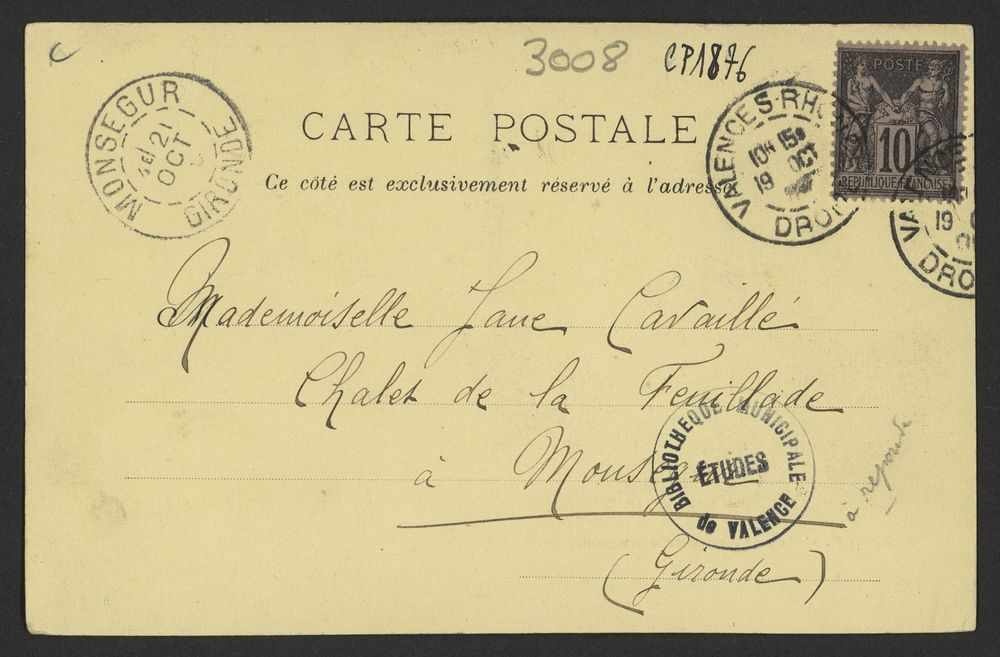 C
3008
CP1876
CARTE POSTALE
Ce côté est exclusivement réservé à l'adresse
MONSEGUR
21
OCT
GIRONDE
VALENCE S-RHONE
10H 15
19 OCT
DROME
POSTE
10
REPUBLIQUE FRANCAISE
19
DRO
Mademoiselle Jane Cavaillé
Chalet de la Feuillade
à Monségur
(Gironde)
BIBLIOTHEQUE MUNICIPALE
ÉTUDES
de VALENCE
à repondre